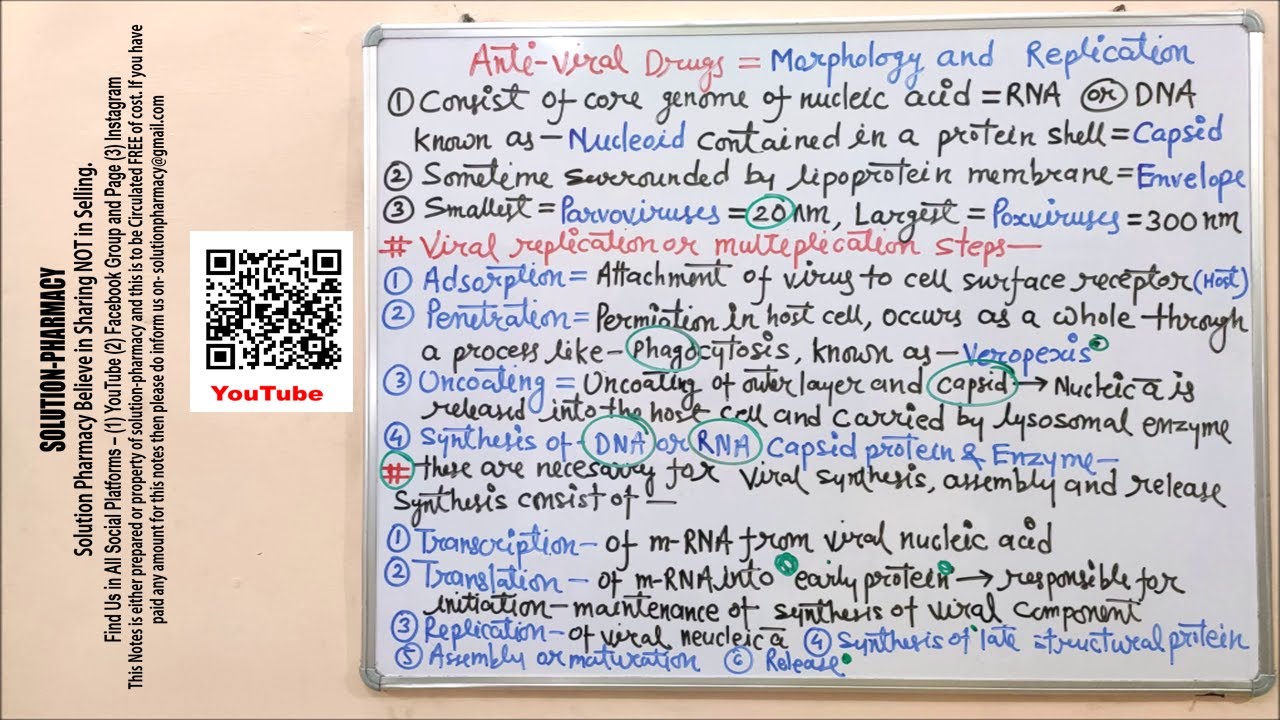 SOLUTION-PHARMACY
Solution Pharmacy Believe in Sharing NOT in Selling.
Find Us in All Social Platforms – (1) YouTube (2) Facebook Group and Page (3) Instagram
This Notes is either prepared or property of solution-pharmacy and this is to be Circulated FREE of cost. If you have
paid any amount for this notes then please do inform us on- solutionpharmacy@gmail.com
YouTube
Anti-Viral Drugs = Morphology and Replication
① Consist of core genome of nucleic acid = RNA or DNA
known as – Nucleoid contained in a protein shell = Capsid
② Sometime surrounded by lipoprotein membrane = Envelope
③ Smallest = Parvoviruses = 20 nm, Largest = Poxviruses = 300 nm
# Viral replication or multeplication steps —
① Adsorption = Attachment of virus to cell surface receptor (Host)
② Penetration = Permiation in host cell, occurs as a whole through
a process like – Phagocytosis, known as – Veropexis
③ Uncoating = Uncoating of outer layer and capsid → Nucleic a is
released into the host cell and carried by lysosomal enzyme
④ Synthesis of DNA or RNA Capsid protein & Enzyme –
# these are necessary for viral synthesis, assembly and release
Synthesis consist of —
① Transcription – of m-RNA from viral nucleic acid
② Translation – of m-RNA into early protein → responsible for
initiation – maintenance of synthesis of viral component
③ Replication – of viral neucleic a ④ Synthesis of late structural protein
⑤ Assembly or maturation ⑥ Release